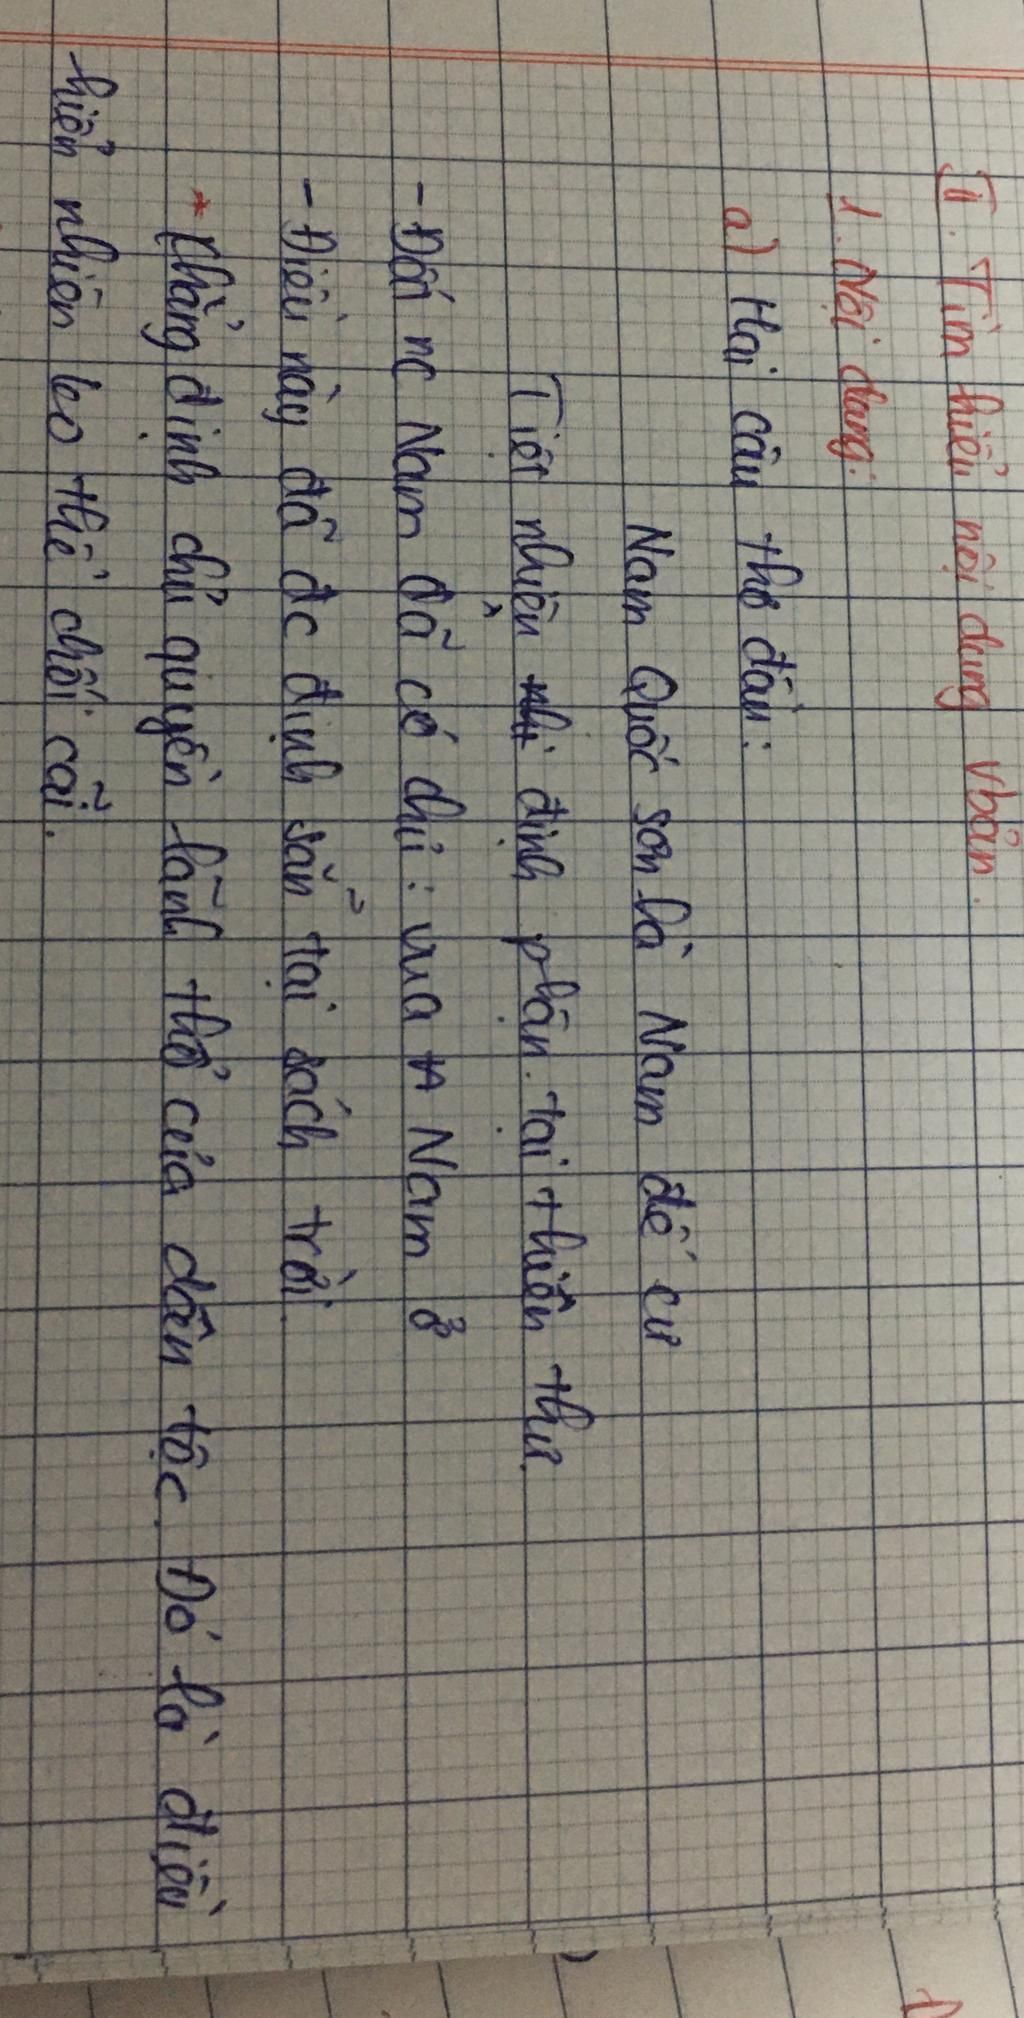 II. Tìm hiểu nội dung vbản.
1. Nội dung:
a) Hai câu thơ đầu:
Nam Quốc sơn hà Nam đế cư
Tiệt nhiên định phận tại thiên thư
- Đất nc Nam đã có chủ: vua nc Nam ở
- Điều này đã đc định sẵn tại sách trời.
* Khẳng định chủ quyền lãnh thổ của dân tộc. Đó là điều
hiển nhiên ko thể chối cãi.